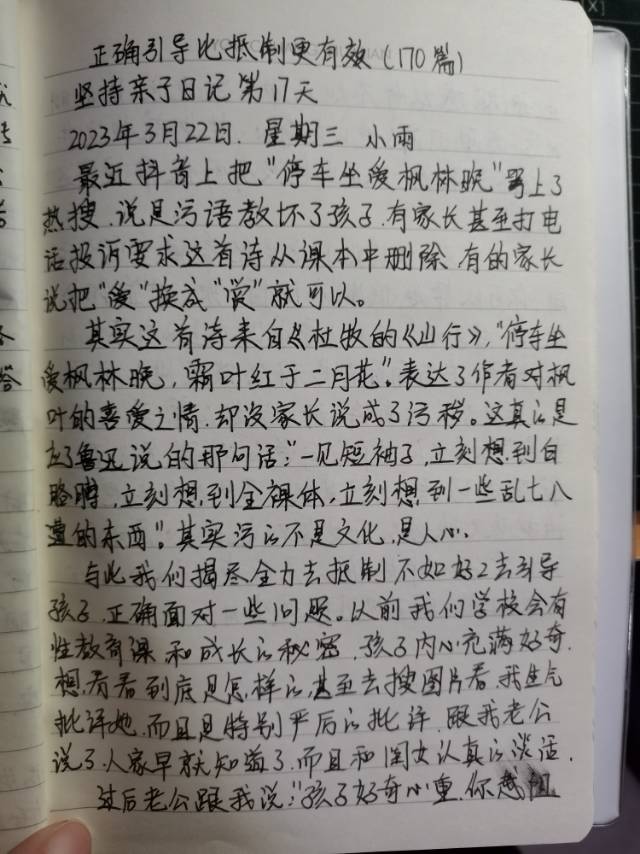 正确引导比抵制更有效(170篇)
坚持亲子日记第17天
2023年3月22日. 星期三 小雨
最近抖音上把"停车坐爱枫林晚"骂上了
热搜.说是污语教坏了孩子.有家长甚至打电
话投诉要求这首诗从课本中删除 有的家长
说把"爱"换成"赏"就可以。
其实这首诗来自《杜牧的《山行》,"停车坐
爱枫林晚,霜叶红于二月花"。表达了作者对枫
叶的喜爱之情.却没家长说成了污秽。这真的是
应了鲁迅说的那句话:"一见短袖子,立刻想到白
胳膊,立刻想到全裸体,立刻想到一些乱七八
遭的东西"。其实污的不是文化.是人心.
与此我们揭尽全力去抵制不如好好去引导
孩子.正确面对一些问题。以前我们学校会有
性教育课和成长的秘密.孩子内心充满好奇.
想看看到底是怎样的,甚至去搜图片看.我生气
批评她.而且是特别严厉的批评.跟我老公
说了.人家早就知道了.而且和闺女认真的谈话.
过后老公跟我说:"孩子好奇心重.你越阻
答